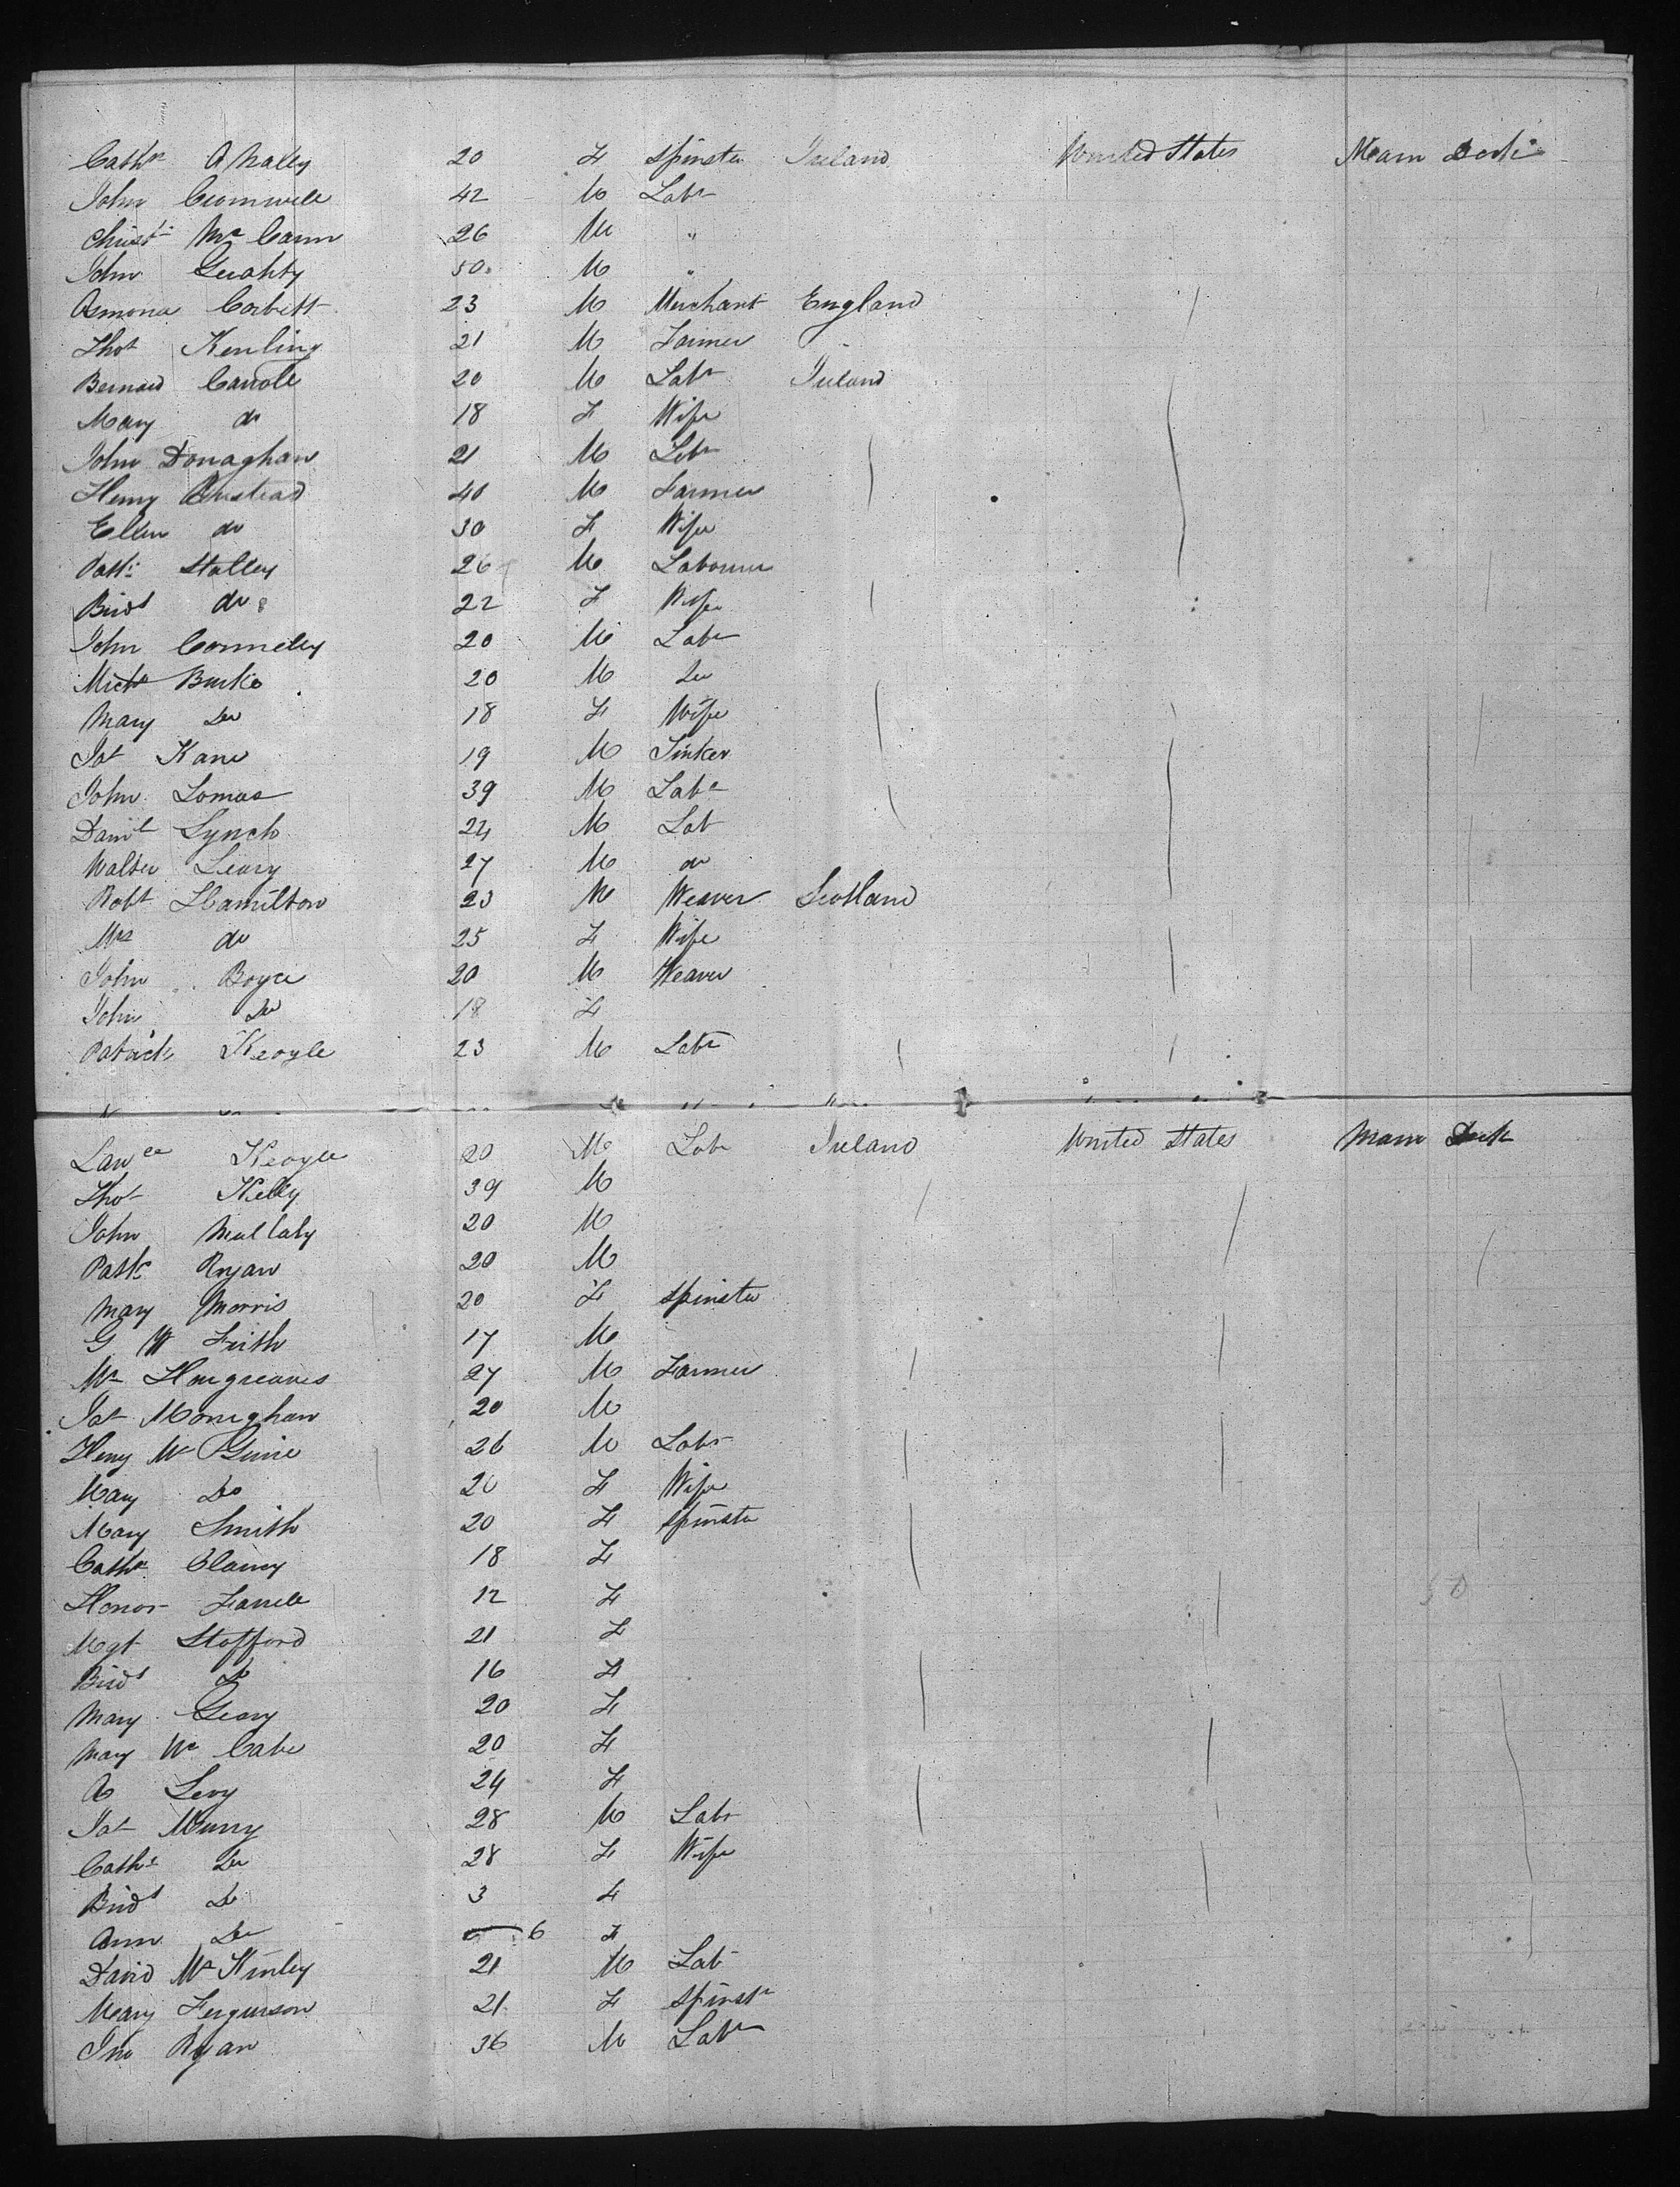 Cathn O Nally 20 F Spinster Ireland United States Main Deck
John Cromwell 42 M Labr
Christr Mc Cann 26 M "
John Gerahty 50 M "
Corbett 23 M Merchant England
Thos Kenling 21 M Farmer "
Bernard Carroll 20 M Labr Ireland
Mary do 18 F Wife
John Donaghan 21 M Labr
Henry 40 M Farmer
Ellen do 30 F Wife
Patk Stalley 26 M Labourer
Bridt do 22 F Wife
John Connelly 20 M Labr
Michl Burke 20 M Do
Mary Do 18 F Wife
Jas Kane 19 M Tinker
John Lomas 39 M Labr
Danl Lynch 24 M Lab
Walter Leary 27 M do
Robt Hamilton 23 M Weaver Scotland
Mrs do 25 F Wife
John Boyce 20 M Weaver
John Do 18 F
Patrick Keogle 23 M Labr
Lawce Keogle 20 M Labr Ireland United States Main Deck
Thos Kelly 39 M
John Mullaly 20 M
Patk Ryan 20 M
Mary Morris 20 F Spinster
G W Frith 17 M
Wm Hargreaves 27 M Farmer
Jas Moneghan 20 M
Henry Mc Guire 26 M Labr
Mary Do 20 F Wife
Mary Smith 20 F Spinster
Cathn Clancy 18 F
Honor Farrell 12 F
Mgt Stafford 21 F
Bridt Do 16 F
Mary Geary 20 F
Mary Mc Cabe 20 F
A Levy 24 F
Jas Murry 28 M Labr
Cathe Do 28 F Wife
Bridt Do 3 F
Ann Do 6 F
David Mc Kinley 21 M Lab
Mary Ferguson 21 F Spinstr
Jno Ryan 36 M Labr